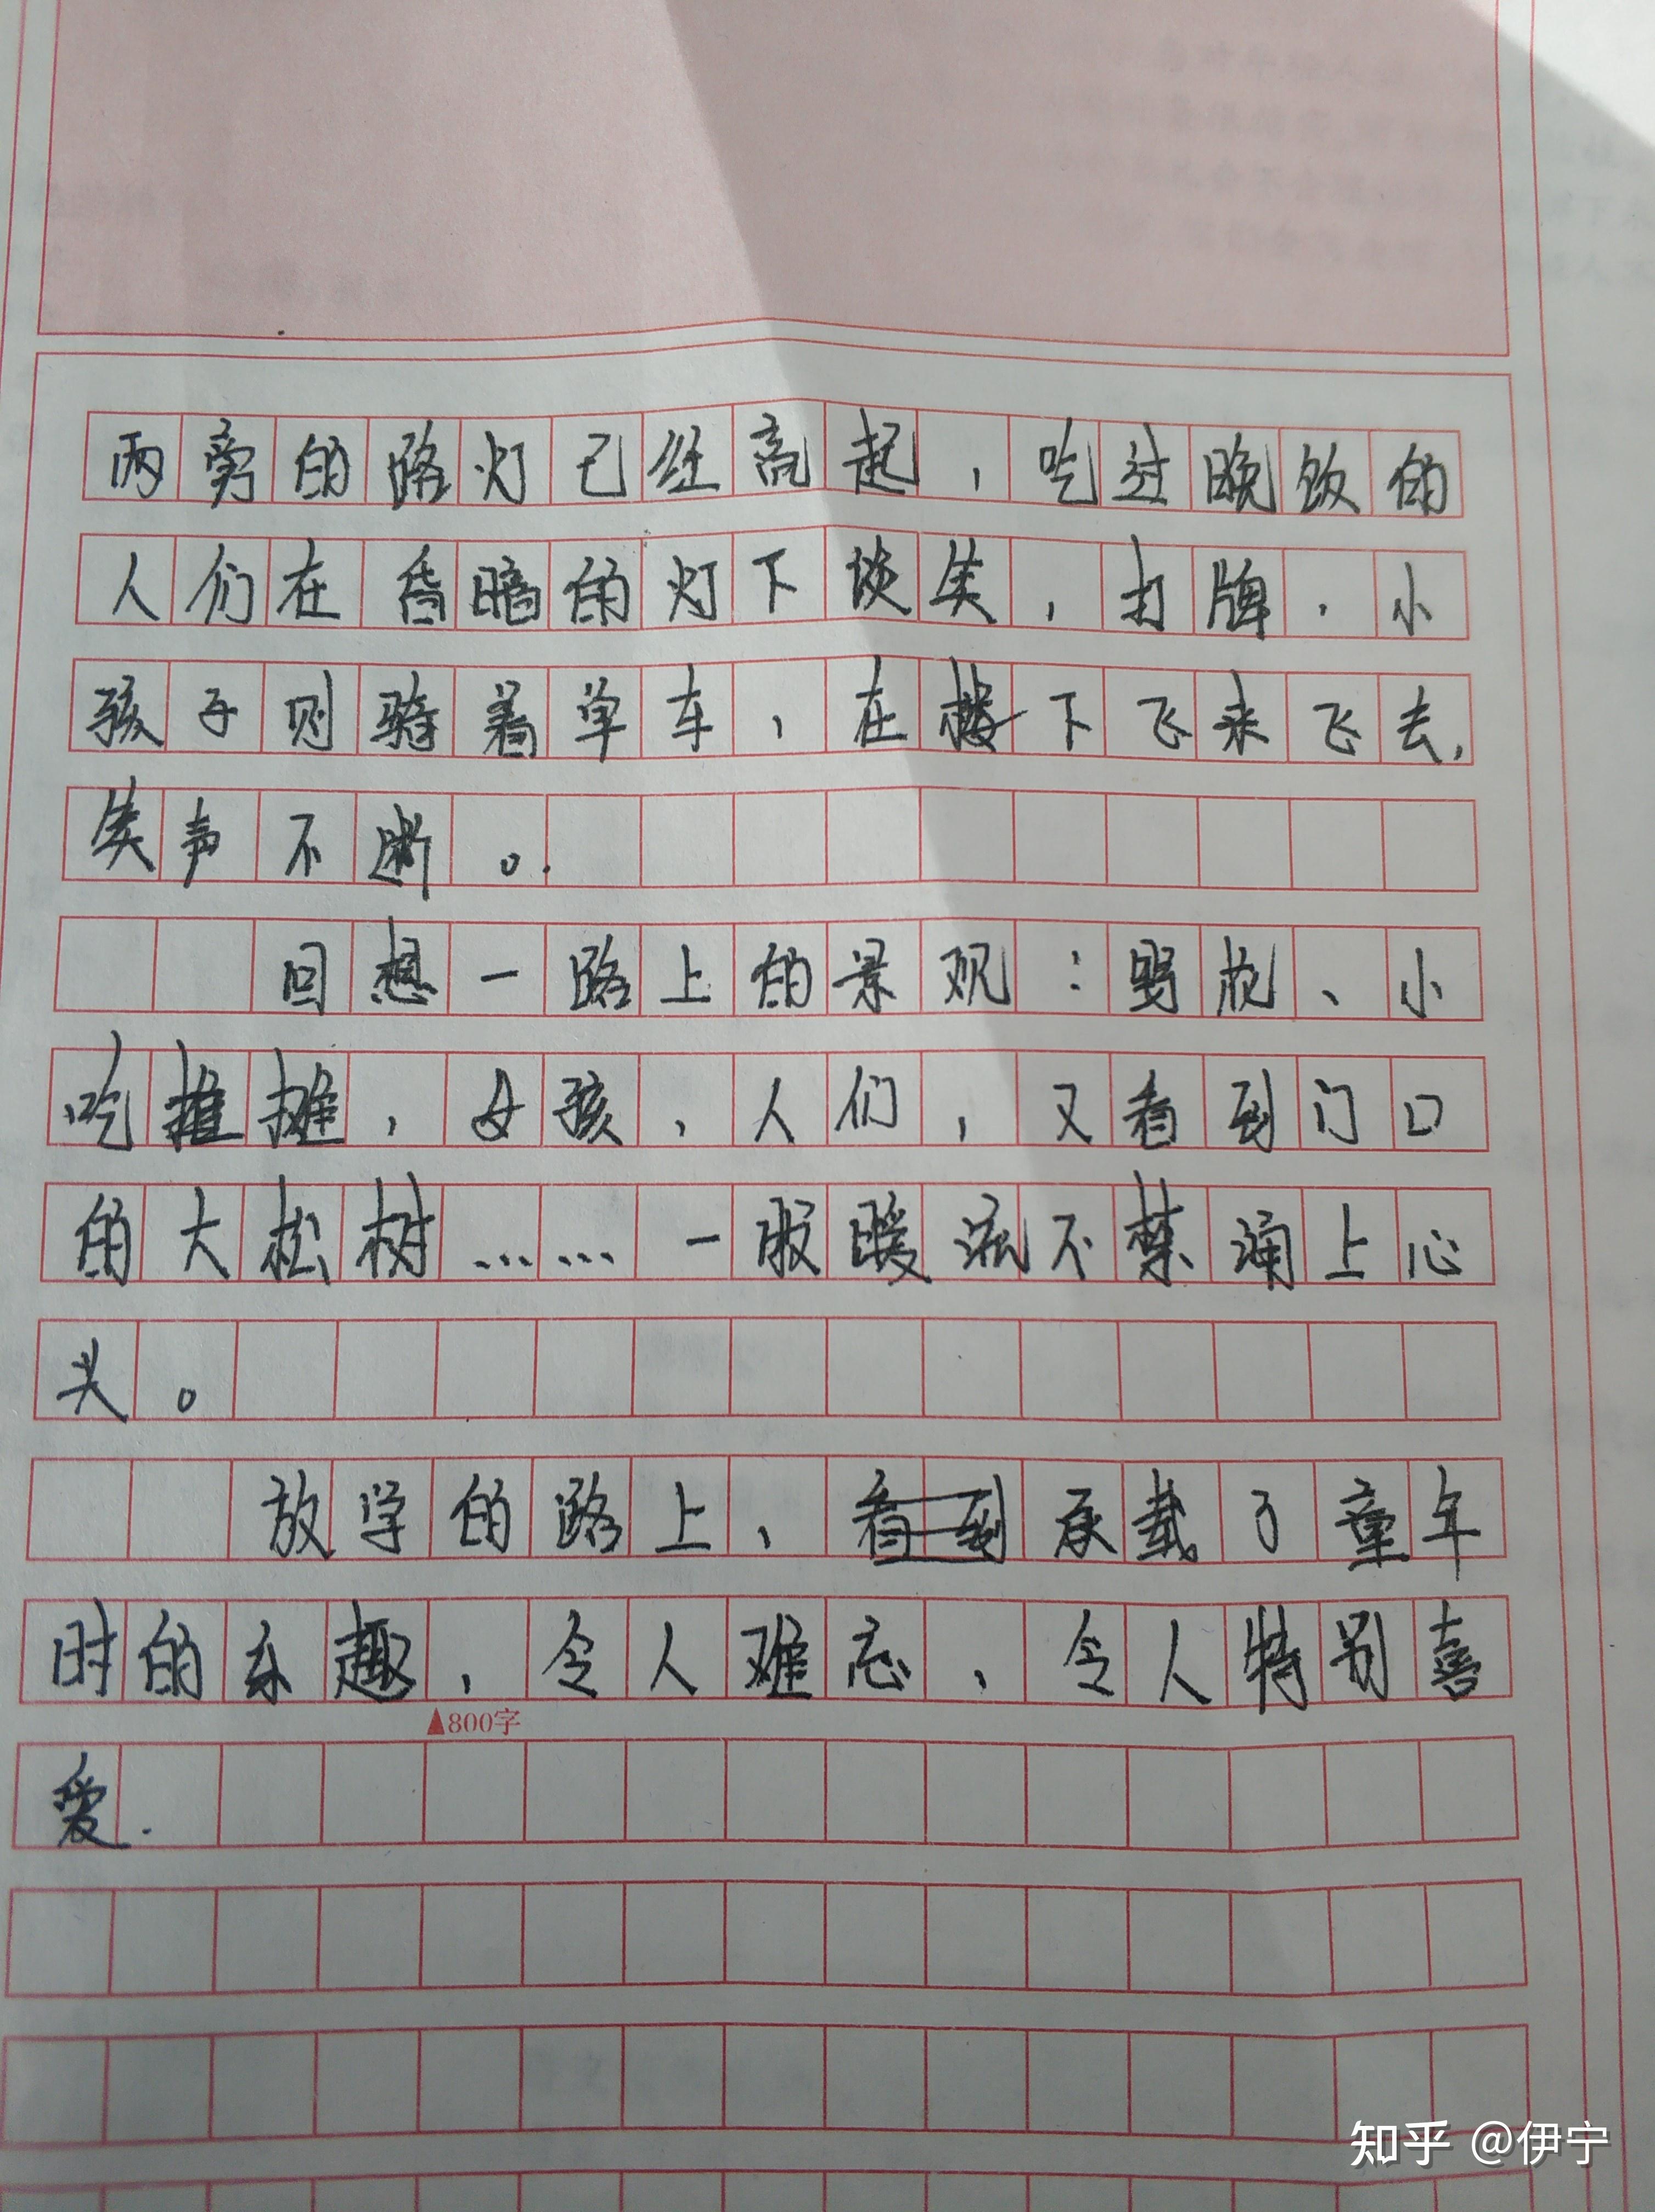 两旁的路灯已经高起，吃过晚饭的
人们在昏暗的灯下谈笑，打牌．小
孩子则骑着单车，在楼下飞来飞去，
笑声不断。
回想一路上的景观：野花、小
吃摊，女孩，人们，又看到门口
的大松树……一股暖流不禁涌上心
头。
放学的路上、承载了童年
时的乐趣，令人难忘、令人特别喜
▲800字
爱．
知乎 @伊宁